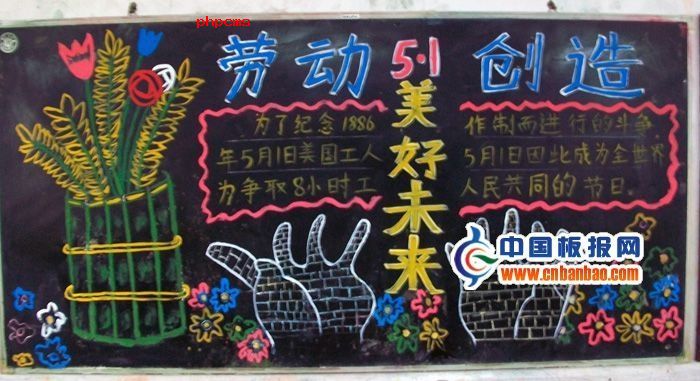 phpcms
劳动 5·1 创造
美好未来
为了纪念1886
年5月1日美国工人
为争取8小时工
作制而进行的斗争
5月1日因此成为全世界
人民共同的节日。
中国板报网
www.cnbanbao.com